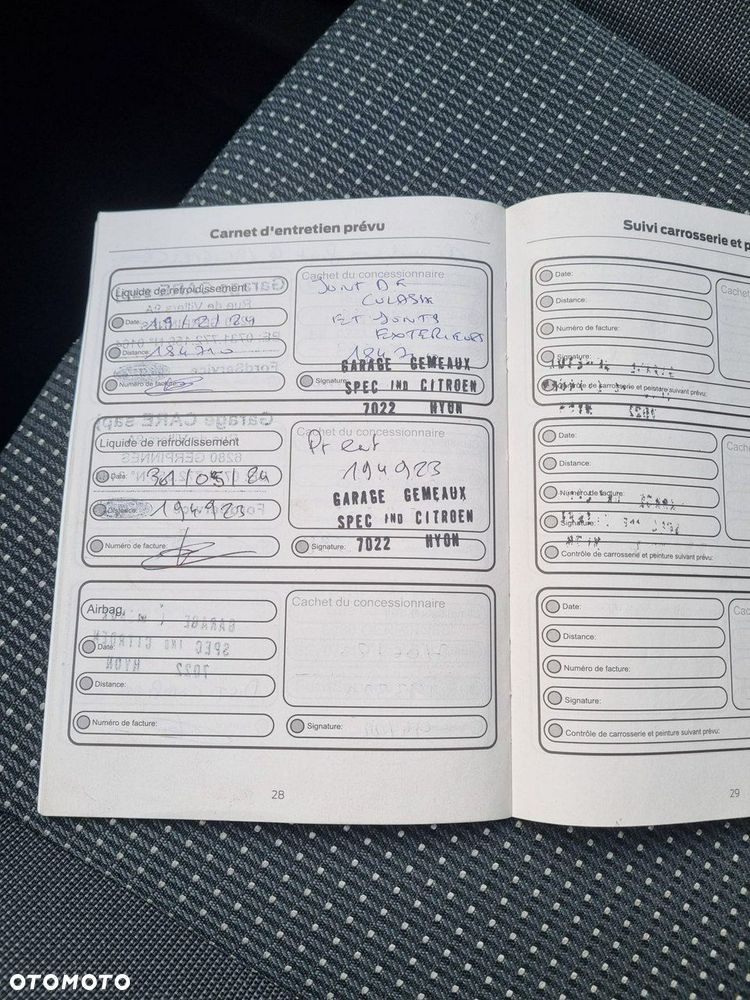 Carnet d'entretien prévu
Liquide de refroidissement
Date: 19/2/24
Distance: 184710
Numéro de facture:
Cachet du concessionnaire
JOINT DE
CULASSE
ET JOINTS
EXTERIEURS
GARAGE GEMEAUX
SPEC IND CITROEN
7022 HYON
Signature:
Liquide de refroidissement
Date: 31/05/24
Distance: 194923
Numéro de facture:
Cachet du concessionnaire
Pt ent
194923
GARAGE GEMEAUX
SPEC IND CITROEN
7022 HYON
Signature:
Airbag
Date:
Distance:
Numéro de facture:
Cachet du concessionnaire
Signature:
28
Suivi carrosserie et p
Date:
Distance:
Numéro de facture:
Signature:
Contrôle de carrosserie et peinture suivant prévu:
Cachet
Date:
Distance:
Numéro de facture:
Signature:
Contrôle de carrosserie et peinture suivant prévu:
Cache
Date:
Distance:
Numéro de facture:
Signature:
Contrôle de carrosserie et peinture suivant prévu:
Cac
29
OTOMOTO